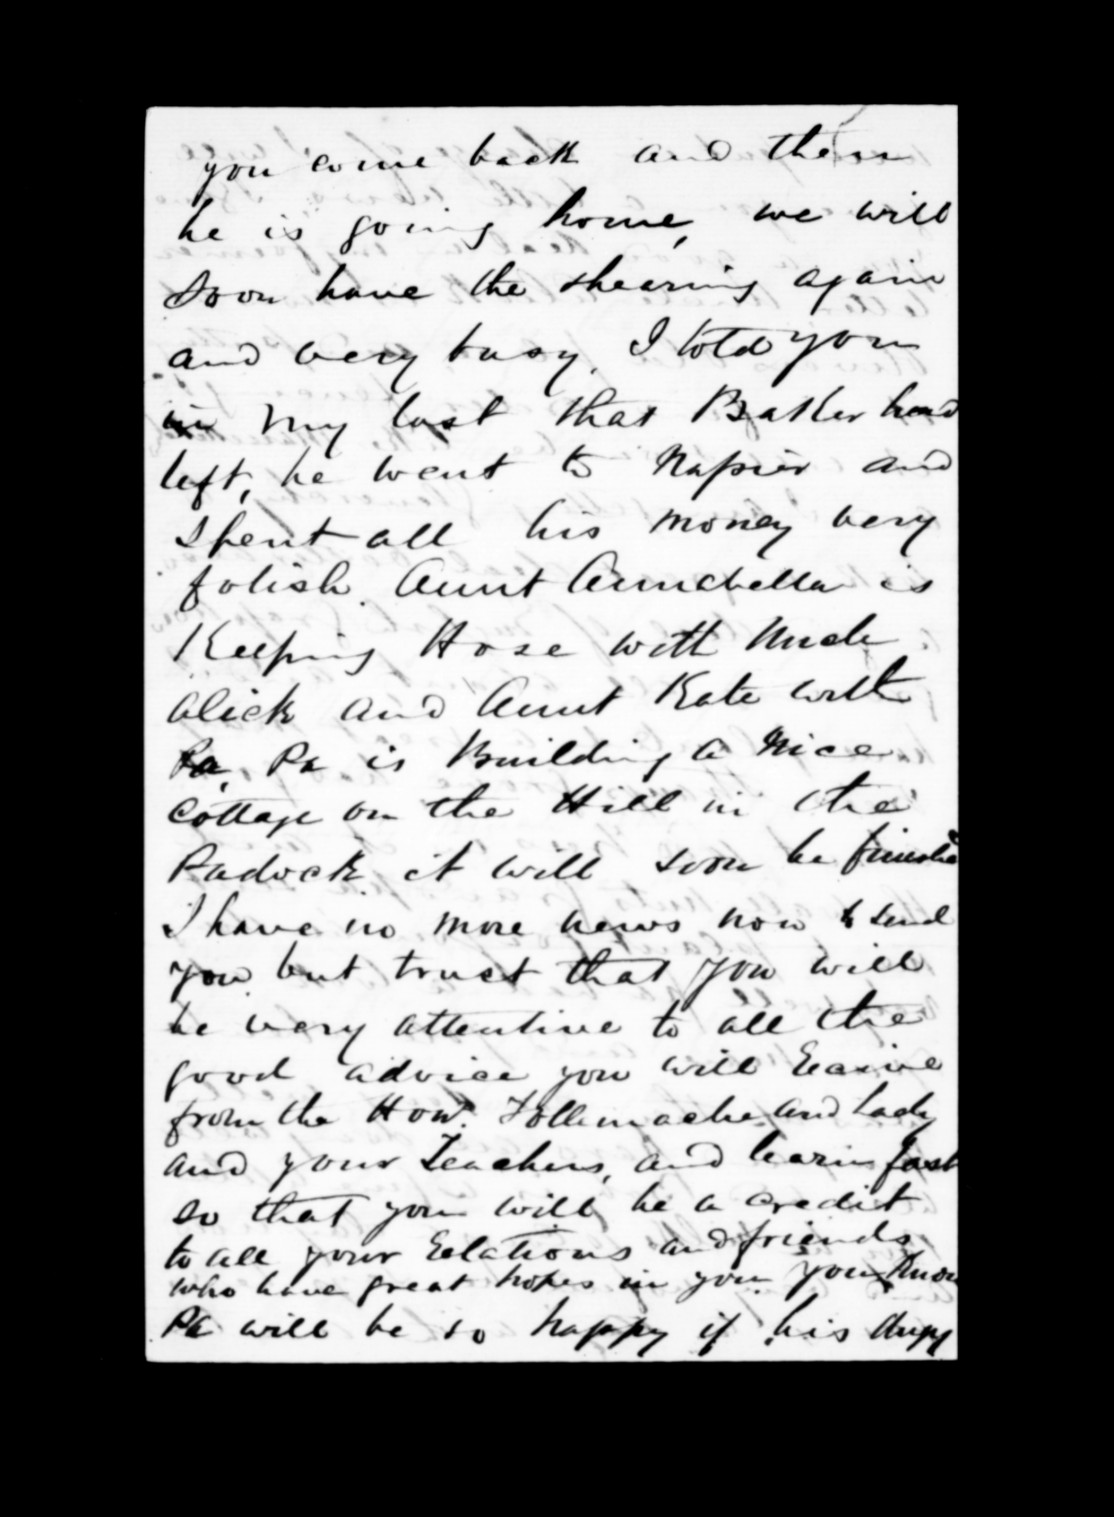 you come back and then
he is going home, we will
soon have the shearing again
and very busy, I told you
in my last that Baker had
left, he went to Napier and
spent all his money very
folish. Aunt Annabella is
Keeping Hose with Uncle
Alick and Aunt Kate with
Pa, Pa is Building a Nice
Cottage on the Hill in the
Padock it will soon be finished
I have no more news now to send
you but trust that you will
be very attentive to all the
good advice you will Receive
from the Hon. Tollemache and Lady
and your Teachers, and learn fast
so that you will be a credit
to all your Relations and friends
who have great hopes in you. You know
Pa will be so happy if his